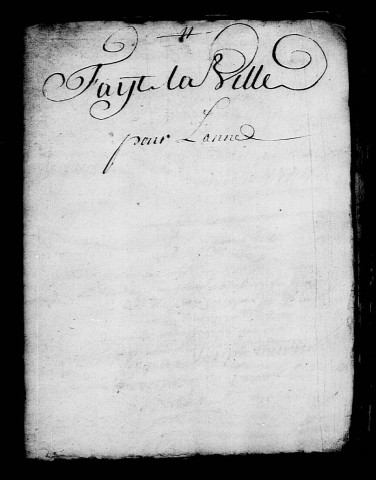 Fayt la Ville
pour Lanneé